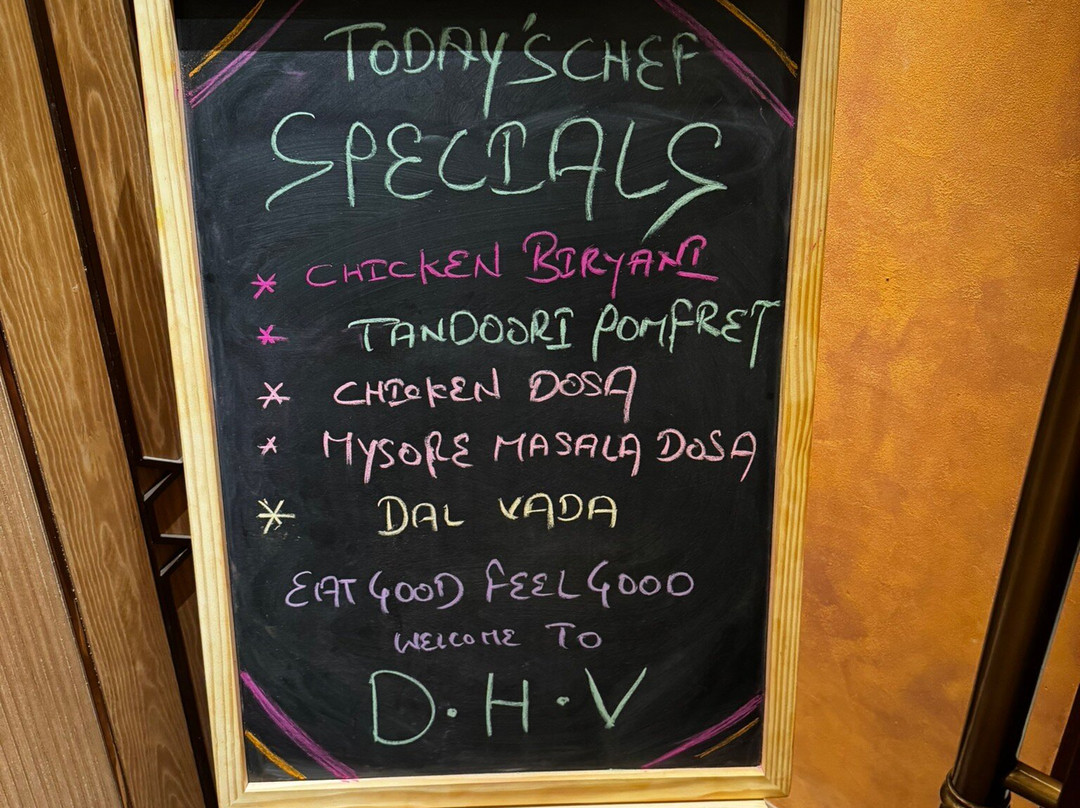 TODAY'S CHEF
SPECIALS
* CHICKEN BIRYANI
* TANDOORI POMFRET
* CHICKEN DOSA
* MYSORE MASALA DOSA
* DAL VADA
EAT GOOD FEEL GOOD
WELCOME TO
D.H.V